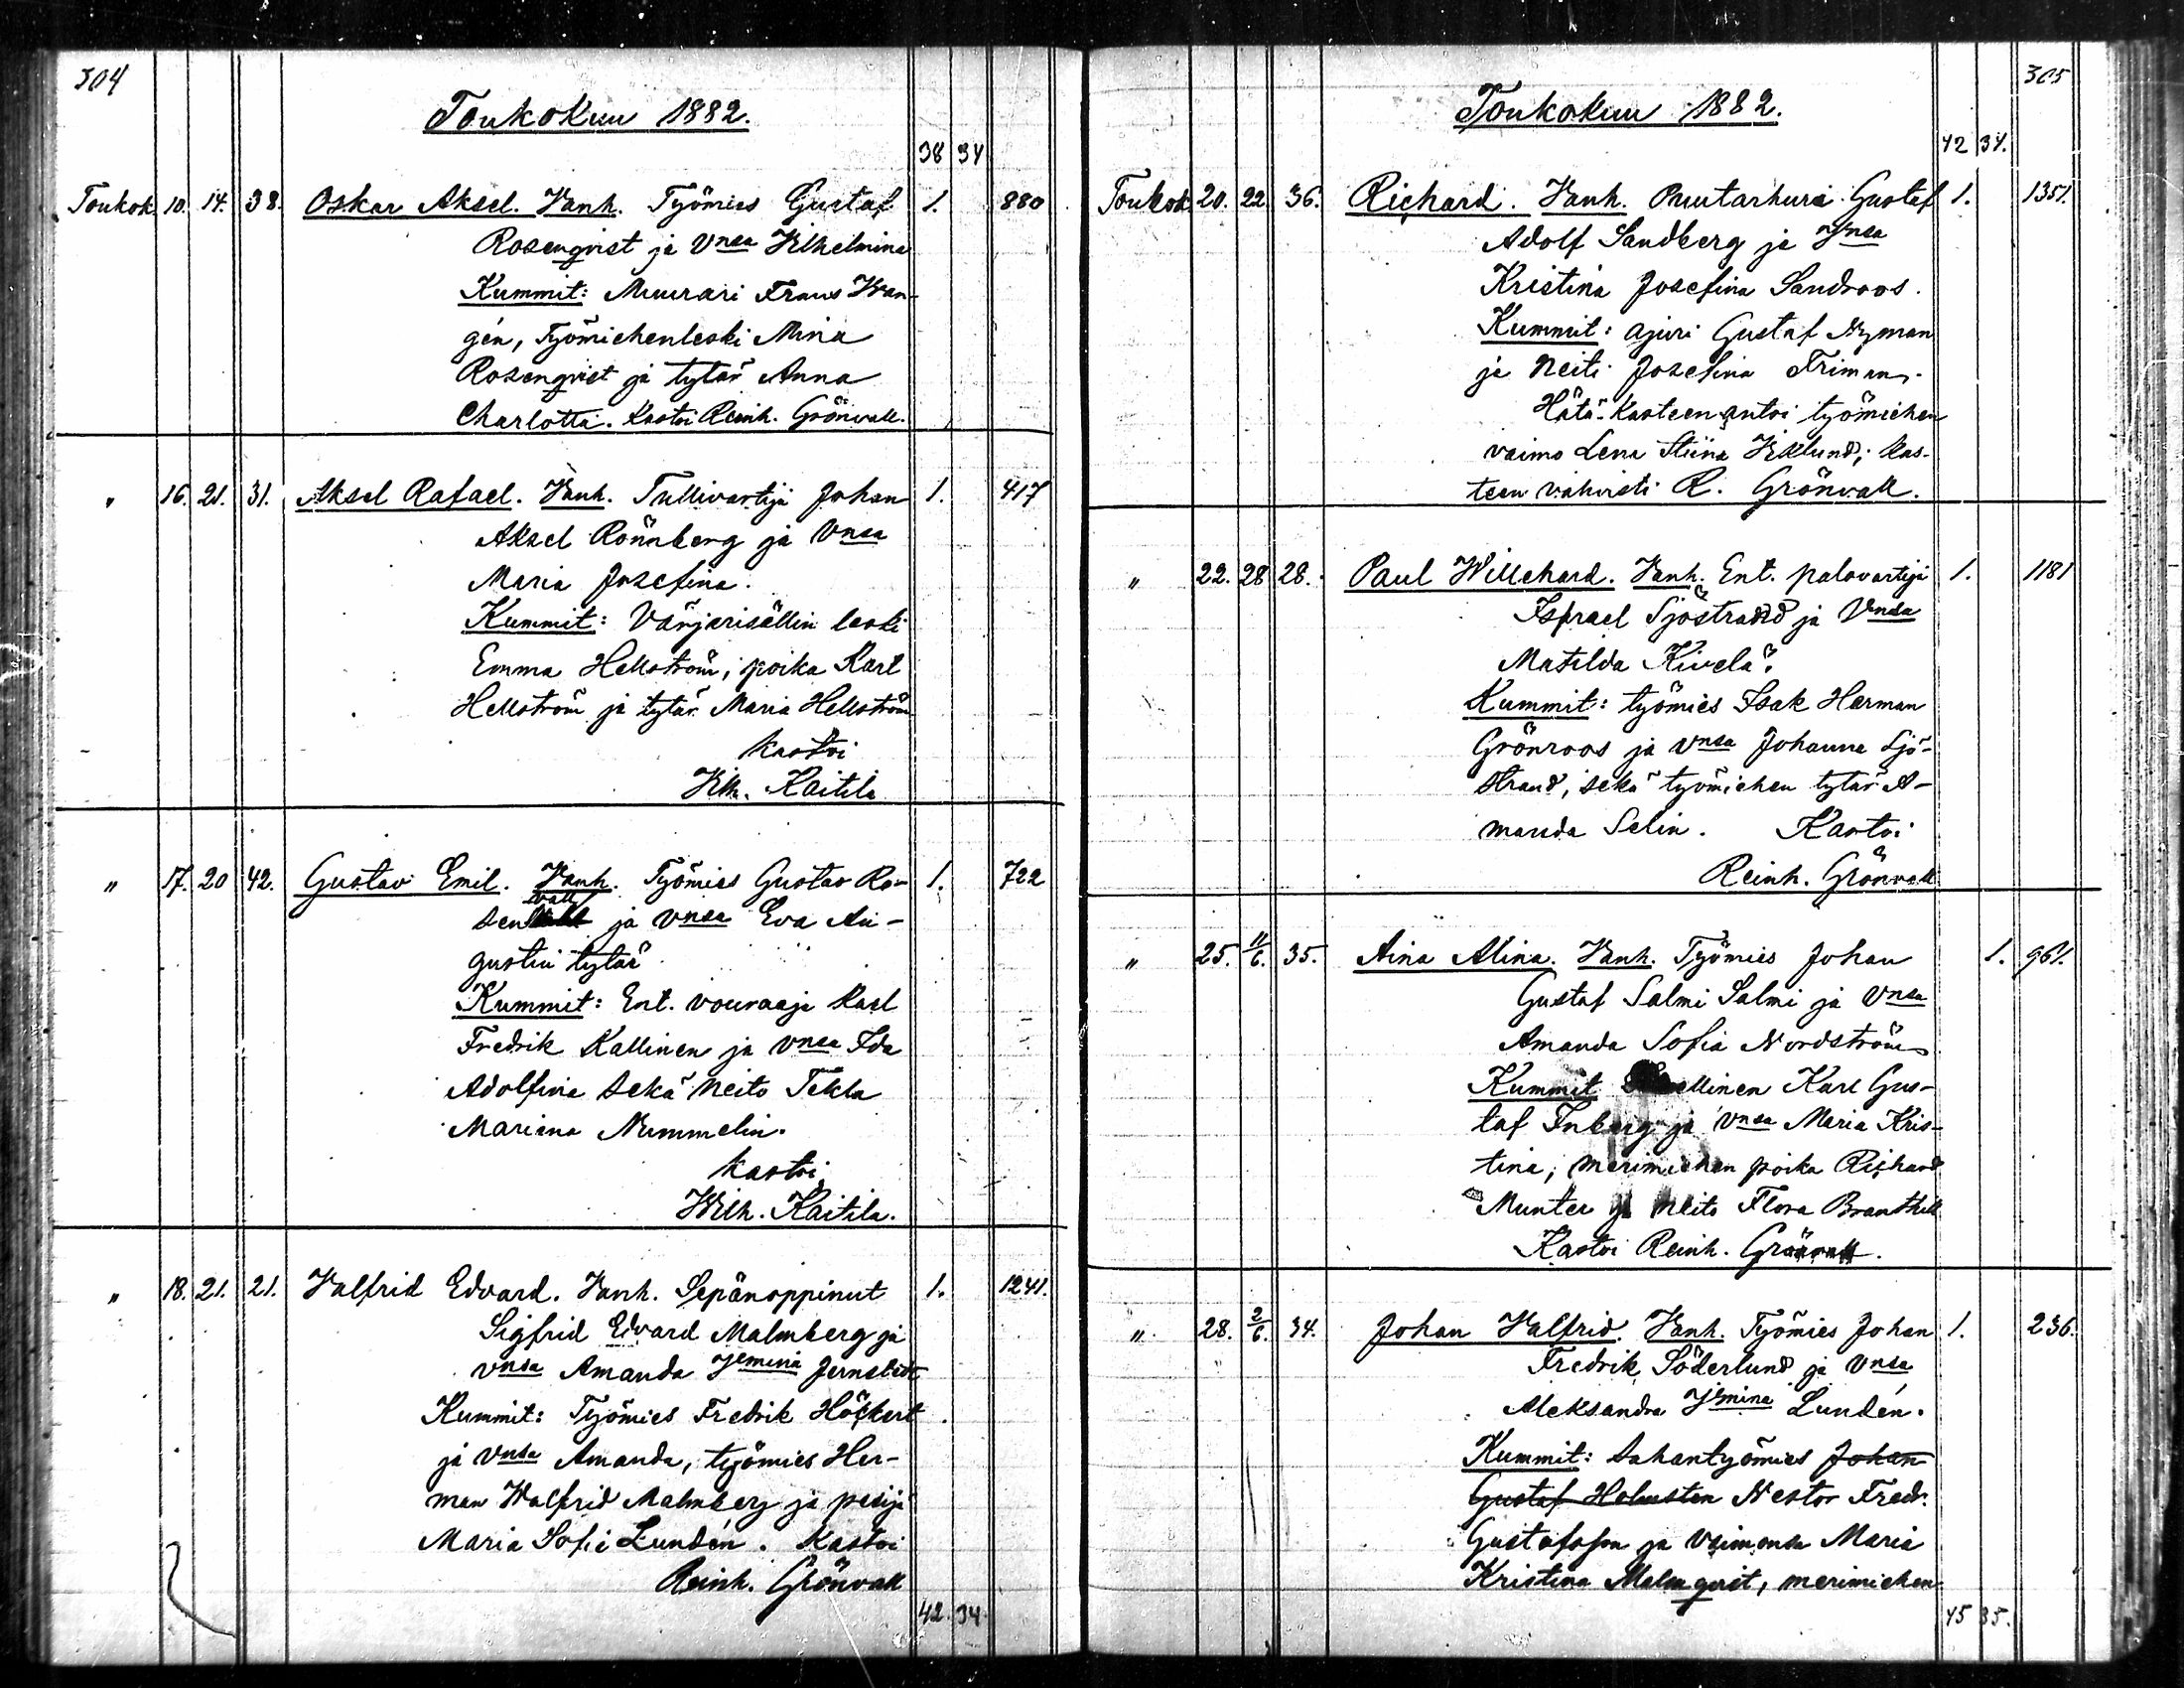 304
Toukokuu 1882.
38 34
Toukok. 10. 14. 38. Oskar Aksel. Vanh. Työmies Gustaf 1. 880
Rosenqvist ja Vnsa Vilhelmina
Kummit: Muurari Frans Wan-
gén, Työmiehenleski Mina
Rosenqvist ja tytär Anna
Charlotta. Kastoi Reinh. Grönvall.
" 16. 21. 31. Aksel Rafael. Vanh. Tullivartija Johan 1. 417
Aksel Rönnberg ja Vnsa
Maria Josefina.
Kummit: Värjärisällin leski
Emma Hellström; poika Karl
Hellström ja tytär Maria Hellström
Kastoi
Vilh. Kaitila
" 17. 20 42. Gustav Emil. Vanh. Työmies Gustav Ro- 1. 722
senvall ja Vnsa Eva Au-
gustin tytär
Kummit: Ent. vouraaja Karl
Fredrik Kallinen ja Vnsa Ida
Adolfina sekä Neito Tekla
Mariana Nummelin.
Kastoi
Wilh. Kaitila.
" 18. 21. 21. Valfrid Edvard. Vanh. Sepänoppinut 1. 1241.
Sigfrid Edvard Malmberg ja
Vnsa Amanda Vmina Jernstedt
Kummit: Työmies Fredrik Höckert
ja Vnsa Amanda, työmies Her-
man Walfrid Malmberg ja pesijä
Maria Sofia Lundén. Kastoi
Reinh. Grönvall
42. 34.
305
Toukokuu 1882.
42 34.
Toukok. 20. 22. 36. Richard. Vanh. Puutarhuri Gustaf 1. 1351.
Adolf Sandberg ja Vnsa
Kristina Josefina Sandroos.
Kummit: ajuri Gustaf Nyman
ja Neiti Josefina Friman.
Hätä-Kasteen antoi työmiehen
vaimo Lena Stiina Viklund; kas-
teen vahvisti R. Grönvall.
" 22. 28 28. Paul Willehard. Vanh. Ent. palovartija 1. 1181
Israel Sjöstrand ja Vnsa
Matilda Kivelä.
Kummit: työmies Isak Herman
Grönroos ja Vnsa Johanna Sjö-
strand, sekä työmiehen tytär A-
manda Selin. Kastoi
Reinh. Grönvall
" 25. 11/6. 35. Aina Alina. Vanh. Työmies Johan 1. 961.
Gustaf Salmi Salmi ja Vnsa
Amanda Sofia Nordström
Kummit Karl Gus-
taf Inberg ja Vnsa Maria Kris-
tina, merimiehen poika Richard
Munter ja Neito Flora Branthill
Kastoi Reinh. Grönvall.
" 28. 2/6. 34. Johan Valfrid. Vanh. Työmies Johan 1. 236.
Fredrik Söderlund ja Vnsa
Aleksandra Vmina Lundén.
Kummit: Sahantyömies Johan
Gustaf Holmsten Nestor Fredr.
Gustafsson ja Vaimonsa Maria
Kristina Malmqvist, merimiehen
45 35.